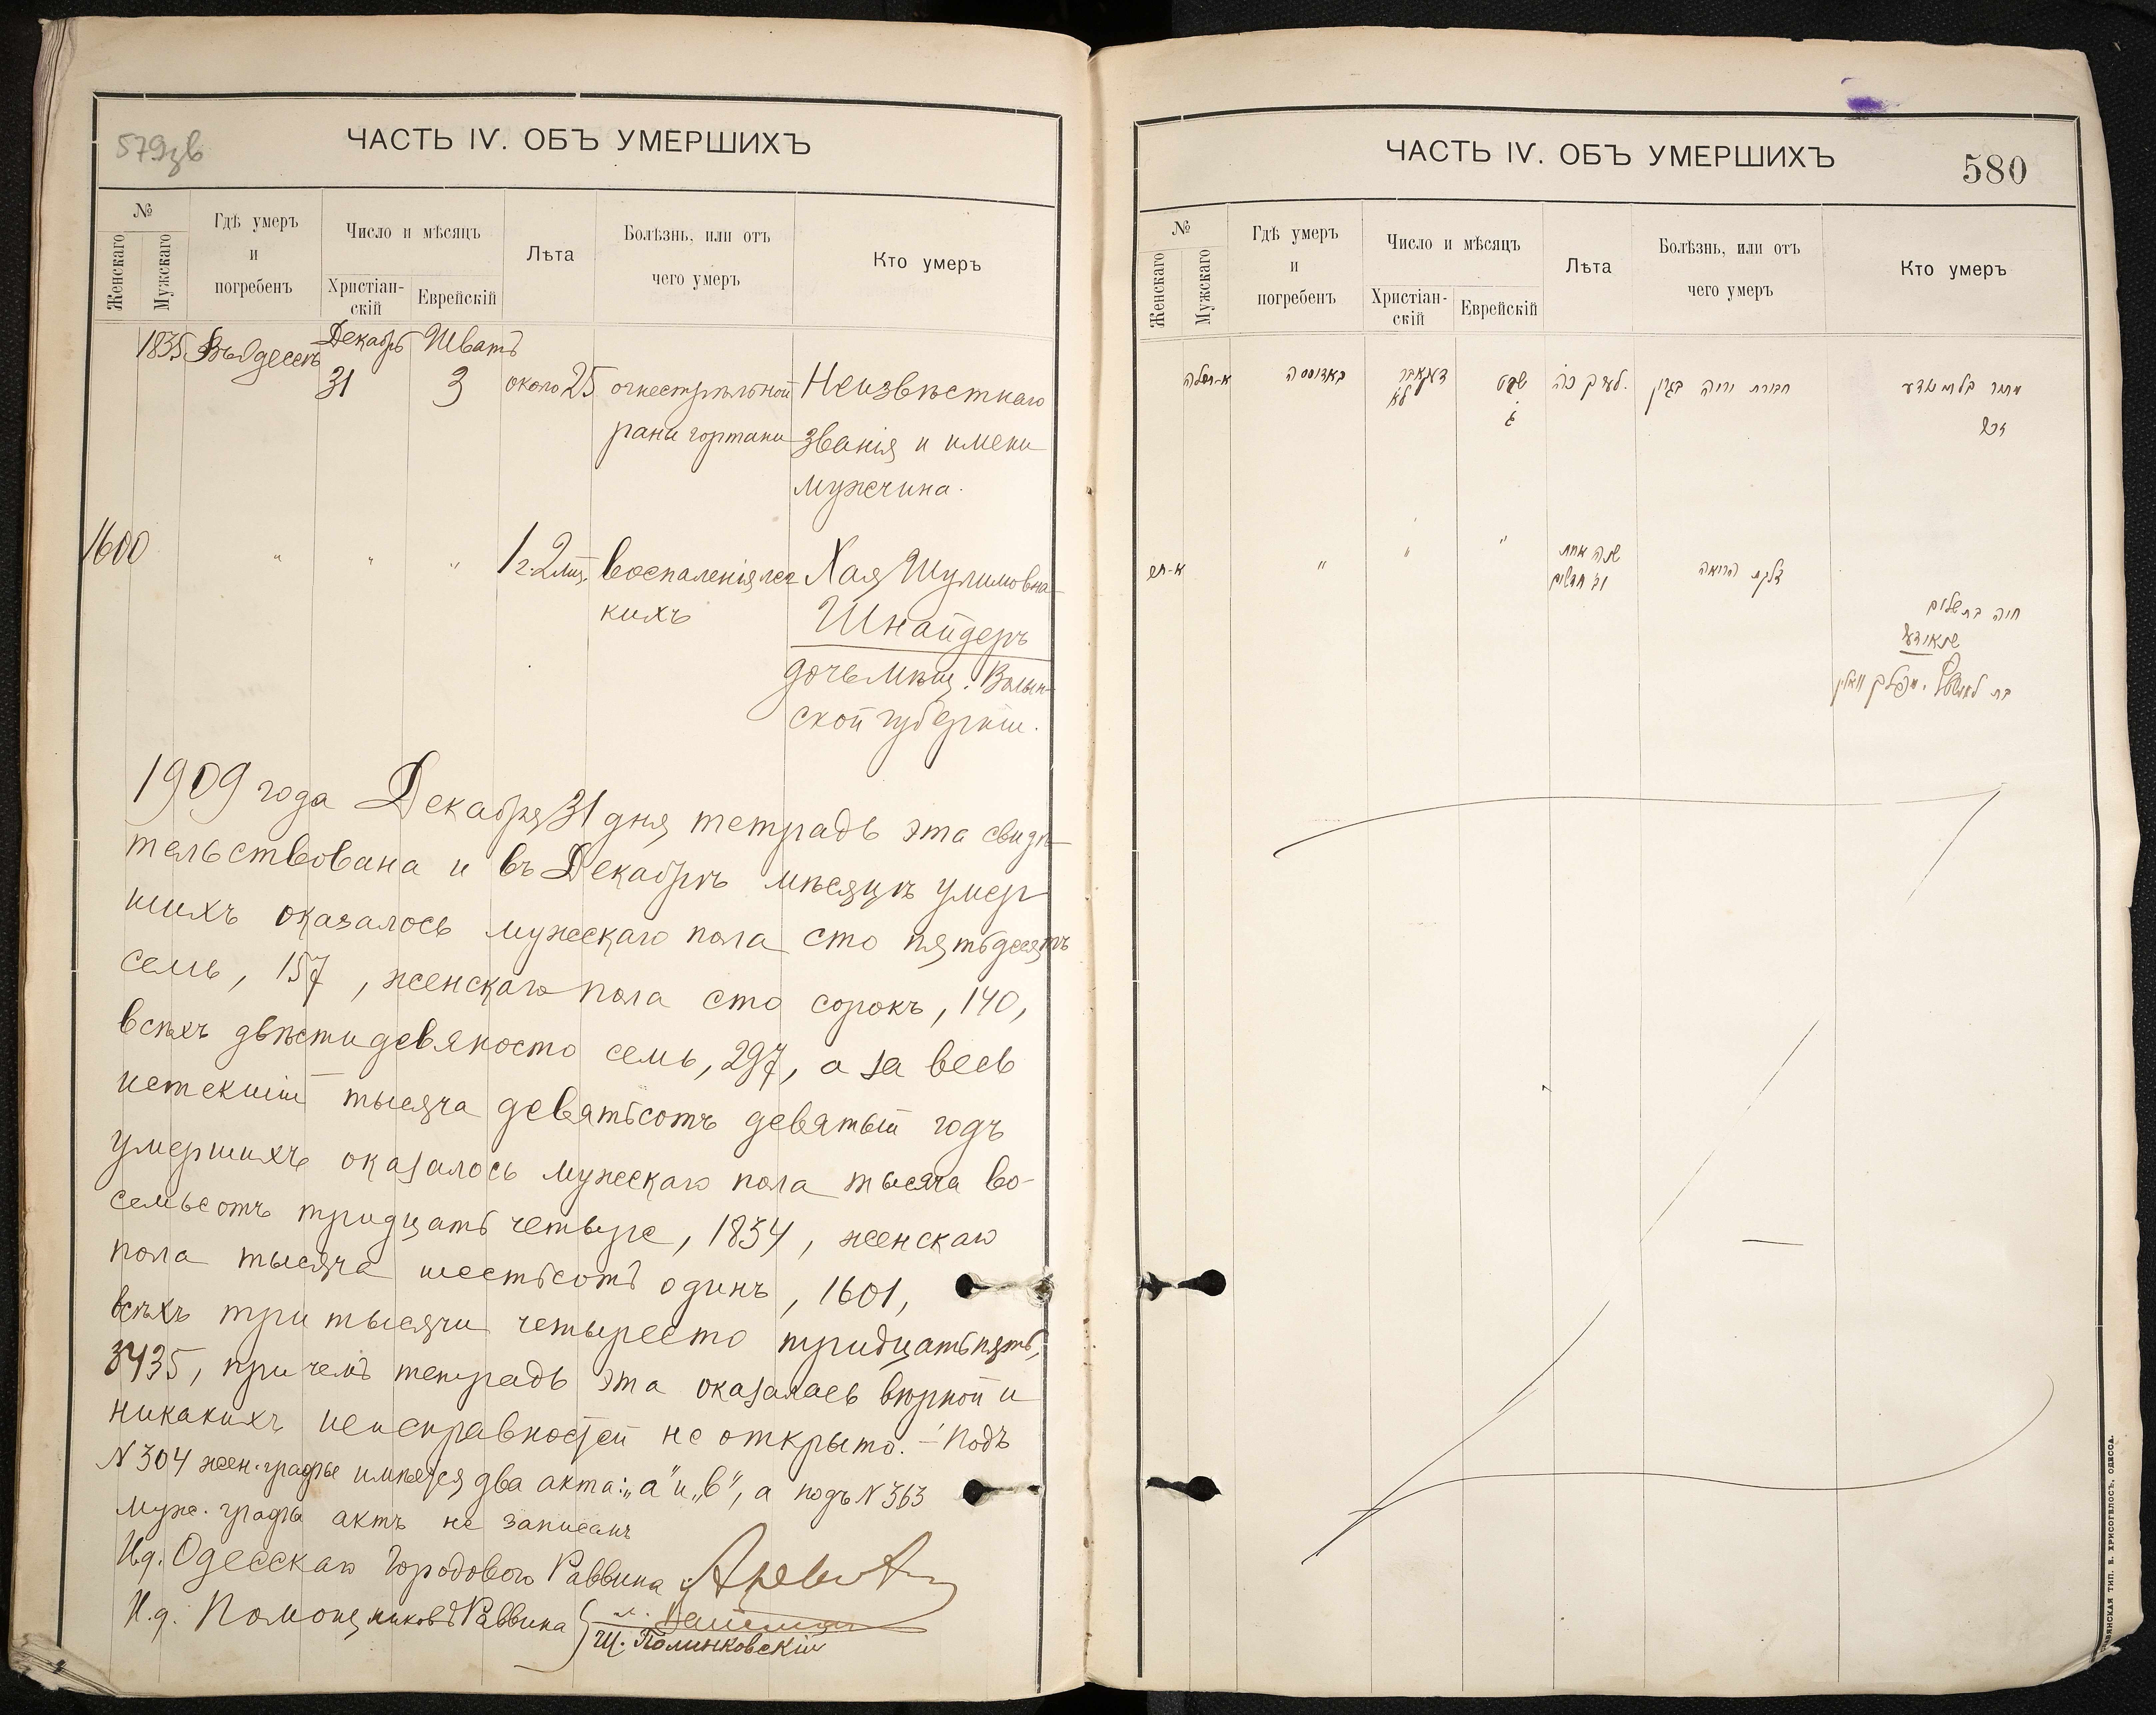 579зв
ЧАСТЬ IV. ОБЪ УМЕРШИХЪ
№
Женскаго
Мужскаго
Гдѣ умеръ
и
погребенъ
Число и мѣсяцъ
Христіан-
скій
Еврейскій
Лѣта
Болѣзнь, или отъ
чего умеръ
Кто умеръ
1835 Въ Одессѣ Декабрь 31 Шватъ 3 около 25 огнестрѣльной Неизвѣстнаго
раны гортани званія и имени
мужчина.
1600 " " " 1 г. 2 мѣс. воспаленія лег Хая Шулимовна
кихъ Шнайдеръ
дочь мѣщ. Волын-
ской губерніи.
1909 года Декабря 31 дня тетрадь эта свидѣ-
тельствована и въ Декабрѣ мѣсяцѣ умер
шихъ оказалось мужескаго пола сто пятьдесятъ
семь, 157, женскаго пола сто сорокъ, 140,
всѣхъ двѣсти девяносто семь, 297, а за весь
истекшій тысяча девятьсотъ девятый годъ
умершихъ оказалось мужескаго пола тысяча во-
семьсотъ тридцать четыре, 1834, женскаго
пола тысяча шестьсотъ одинъ, 1601,
всѣхъ три тысячи четыреста тридцать пять,
3435, при чемъ тетрадь эта оказалась вѣрной и
никакихъ неисправностей не открыто. – Подъ
№ 304 жен. графы имѣется два акта: „а" и „в", а подъ № 363
муж. графы актъ не записанъ
И.д. Одесскаго Городового Раввина
И.д. Помощниковъ Раввина
Ш. Полинковскій
ЧАСТЬ IV. ОБЪ УМЕРШИХЪ
580
№
Женскаго
Мужскаго
Гдѣ умеръ
и
погребенъ
Число и мѣсяцъ
Христіан-
скій
Еврейскій
Лѣта
Болѣзнь, или отъ
чего умеръ
Кто умеръ
באדוססה דעקאבר שבט לערך כה חבורת יריה בגרון
לא ג זכר
" " " שנה אחת דלקת הריאה
וב חדשים
חיה בת שלום
שנאידער
СЛАВЯНСКАЯ ТИП. Е. ХРИСОГЕЛОСЪ, ОДЕССА.